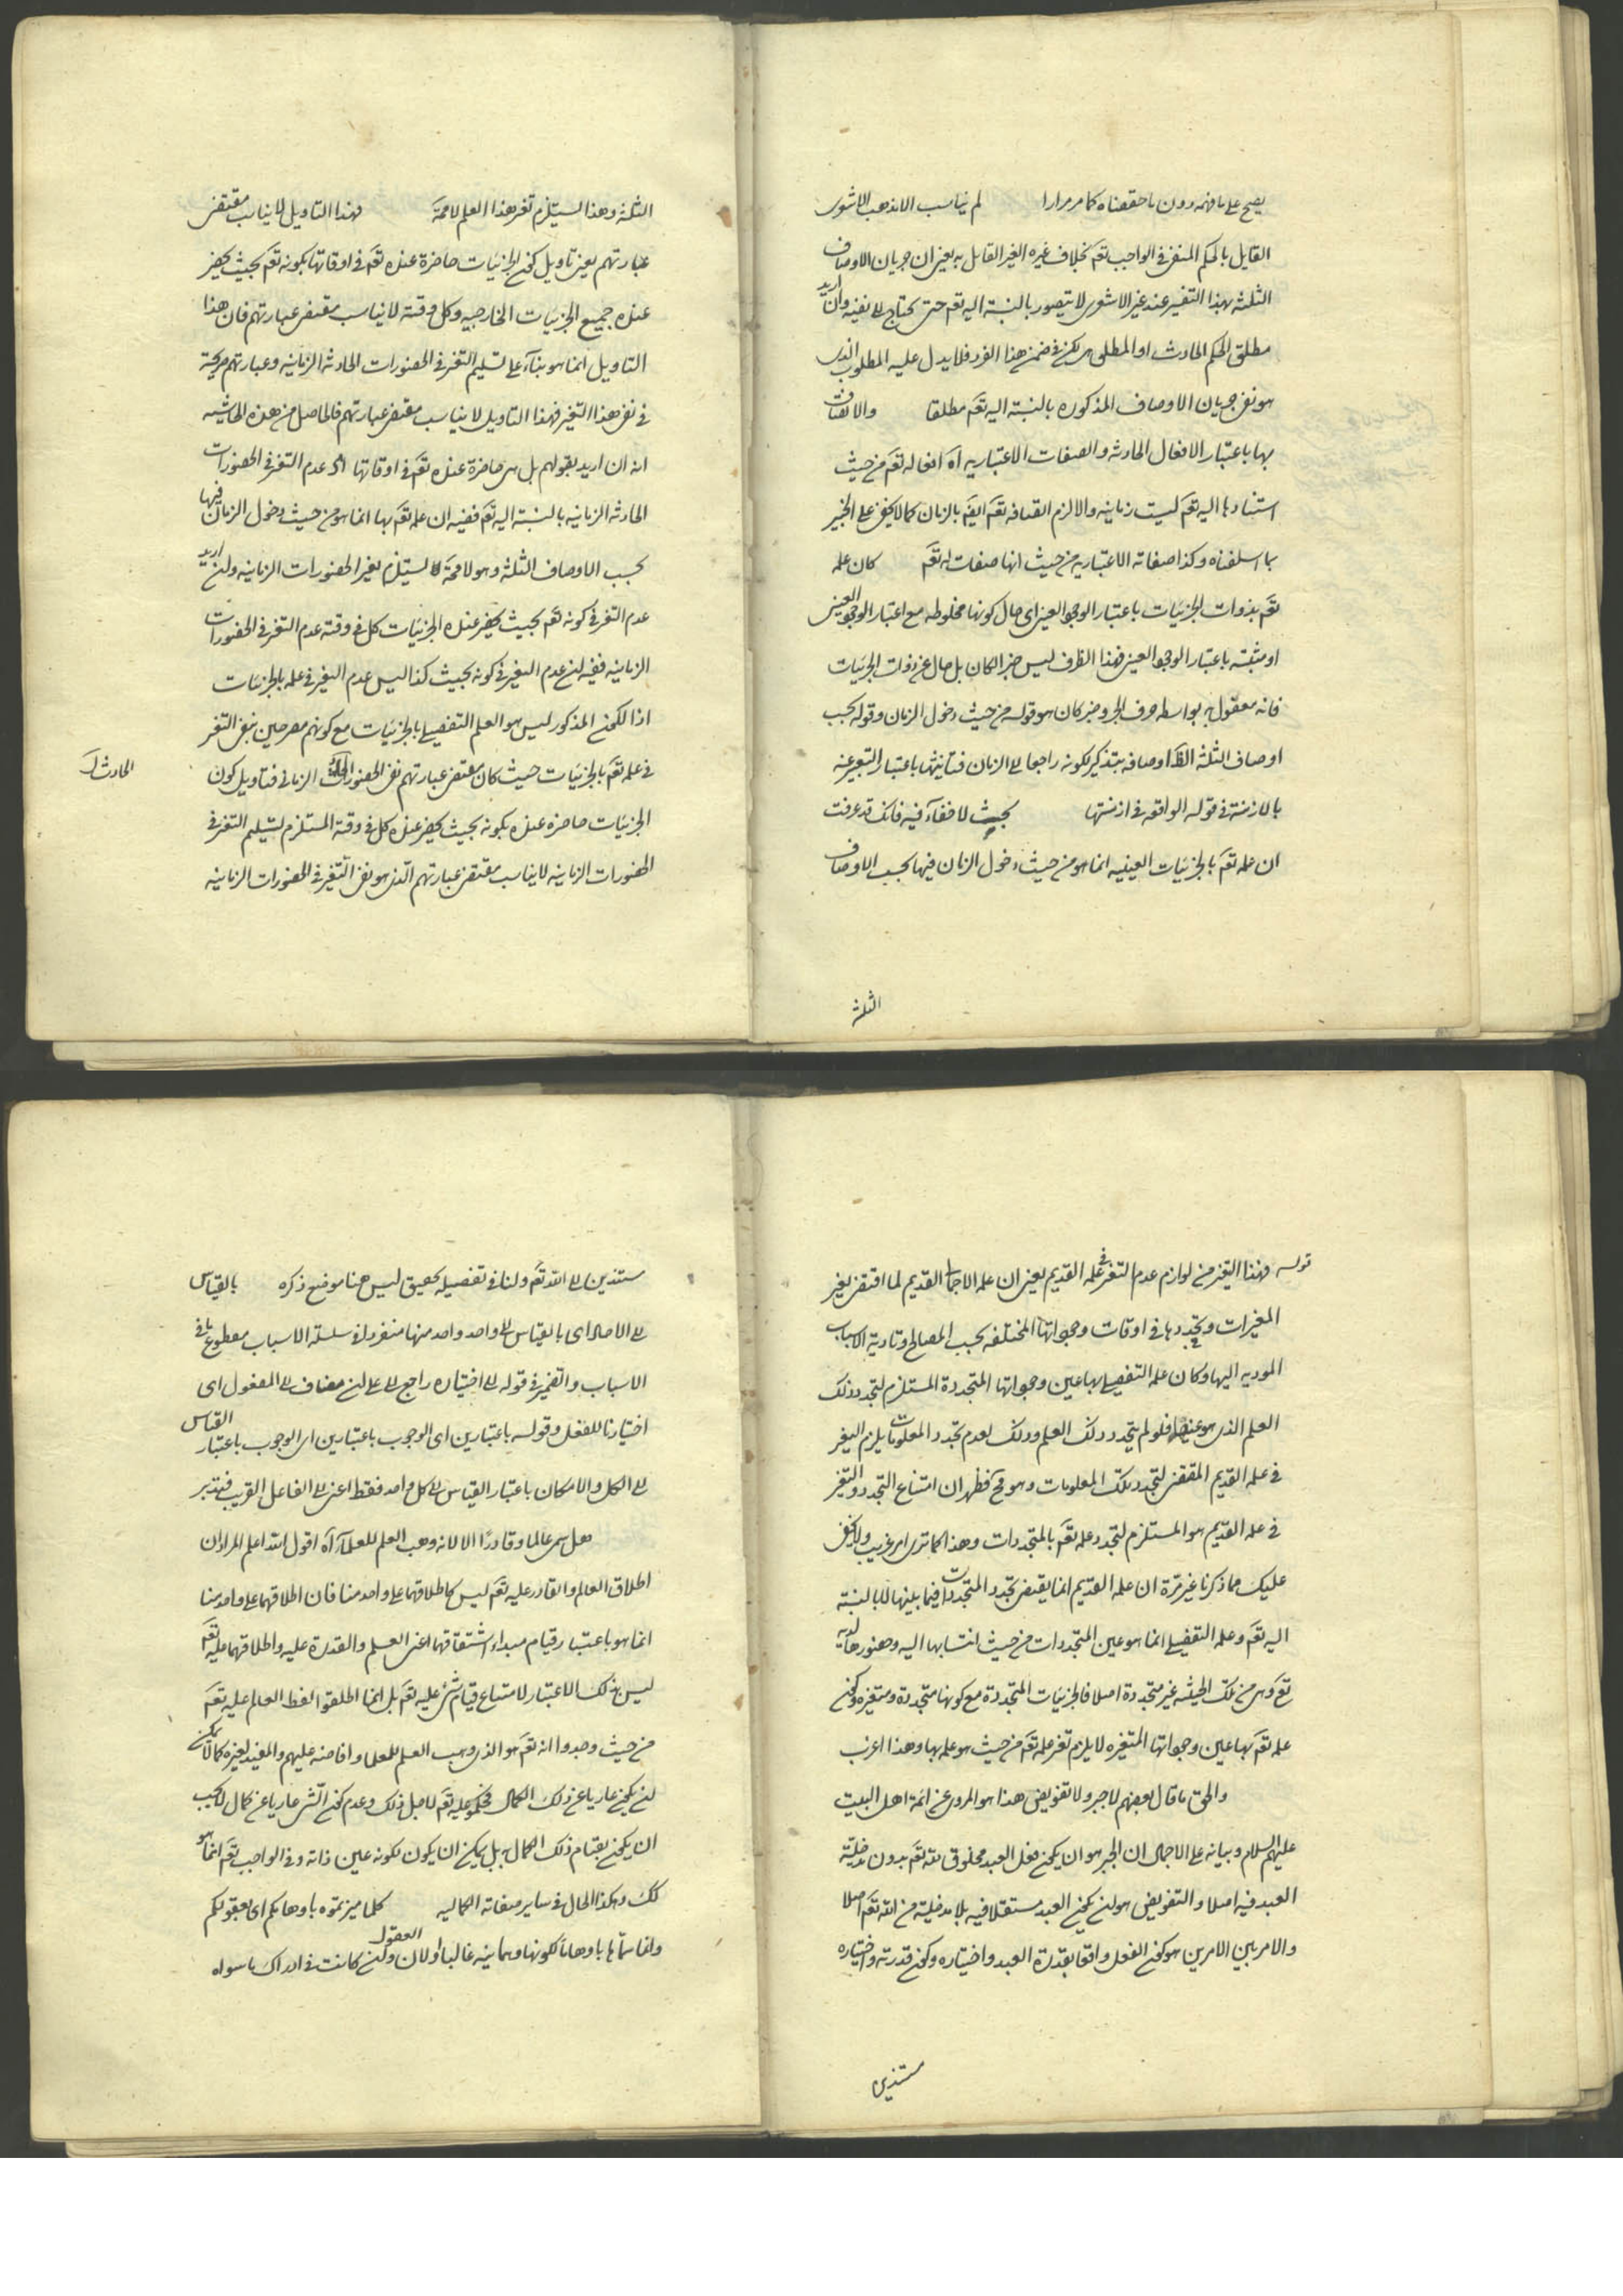 يصح على ما فهمه دون ما حققناه كما مر مرارا لم يناسب الا مذهب الاشعرى
القايل بالحكم المنفى فى الواجب تعم بخلاف غيره الغير القايل به يعنى ان جريان الاوصاف
الثلثة بهذا التفسير عند غير الاشعرى لا يتصور بالنسبة اليه تعم حتى يحتاج الى نفيه وان اريد
مطلق الحكم الحادث او المطلق لكن فى ضمن هذا الفرد فلا يدل عليه المطلوب الذى
هو نفى جريان الاوصاف المذكورة بالنسبة اليه تعم مطلقا والاتصاف
بها باعتبار الافعال الحادثه والصفات الاعتباريه آه افعاله تعم من حيث
استنادها اليه تعم ليست زمانيه والا لزم اتصافه تعم ايضم بالزمان كما لا يخفى على الخبير
بما اسلفناه وكذا صفاته الاعتباريه من حيث انها صفات له تعم كان علمه
تعم بذوات الجزئيات باعتبار الوجو العينى اى حال كونها مخلوطه مع اعتبار الوجو العينى
او مثبتة باعتبار الوجو العينى فهذا الظرف ليس خبرا لكان بل حال عن ذوات الجزئيات
فانه معقول به بواسطه حرف الجر وخبر كان هو قوله من حيث دخول الزمان وقوله بحسب
اوصاف الثلثة الظ اوصافه بتذكير لكونه راجعا الى الزمان فتانيثها باعتبار التعبير عنه
بالازمنة فى قوله الواقعه فى ازمنتها بحيث لا خفآء فيه فانك قد عرفت
ان علمه تعم بالجزئيات العينيه انما هو من حيث دخول الزمان فيها بحسب الاوصاف
الثلثة
الثلثة وهذا يستلزم تغير هذا العلم لا محة فهذا التاويل لا يناسب مقتضى
عبارتهم يعنى تاويل كون الجزئيات حاضرة عنده تعم فى اوقاتها بكونه تعم بحيث يحضر
عنده جميع الجزئيات الخارجيه وكل وقته لا يناسب مقتضى عبارتهم فان هذا
التاويل انما هو بناء على تسليم التغير فى الحضورات الحادثه الزمانيه وعبارتهم صريحة
فى نفى هذا التغير فهذا التاويل لا يناسب مقتضى عبارتهم فالحاصل من هذه الحاشيه
انه ان اريد بقولهم بل هى حاضرة عنده تعم فى اوقاتها اى عدم التغير فى الحضورات
الحادثه الزمانيه بالنسبة اليه تعم ففيه ان علمه تعم بها انما هو من حيث دخول الزمان فيها
بحسب الاوصاف الثلثة وهو لا محة يستلزم تغير الحضورات الزمانيه وان اريد
عدم التغير فى كونه تعم بحيث يحضر عنده الجزئيات كل فى وقته عدم التغير فى الحضورات
الزمانيه ففيه ان عدم التغير فى كونه بحيث كذا ليس عدم التغير فى علمه بالجزئيات
اذا لكون المذكور ليس هو العلم التفصيلى بالجزئيات مع كونهم مصرحين بنفى التغير
فى علمه تعم بالجزئيات حيث كان مقتضى عبارتهم نفى الحضور الزمانى فتاويل كون
الحادث
الجزئيات حاضرة عنده بكونه بحيث يحضر عنده كل فى وقته المستلزم لتسليم التغير فى
الحضورات الزمانيه لا يناسب مقتضى عبارتهم الذى هو نفى التغير فى الحضورات الزمانيه
قوله فهذا التغير من لوازم عدم التغير فى علمه القديم يعنى ان علمه الاجمالى القديم لما اقتضى تغير
المغيرات وتجددها فى اوقات وجوداتها المختلفه بحسب المصالح وتادية الاسباب
الموديه اليها وكان علمه التفصيلى بها عين وجوداتها المتجددة المستلزم لتجدد ذلك
العلم الذى هو عينها فلو لم يتجدد ذلك العلم وذلك لعدم تجدد المعلومات يلزم التغير
فى علمه القديم المقتضى لتجدد تلك المعلومات وهو مح فظهر ان امتناع التجدد والتغير
فى علمه القديم هو المستلزم لتجدد علمه تعم بالمتجددات وهذا كما ترى امر غريب ولا يخفى
عليك مما ذكرنا غير مرة ان علمه القديم انما يقتضى تجدد المتجددات فيما بينها لا بالنسبة
اليه تعم وعلمه التفصيلى انما هو عين المتجددات من حيث انتسابها اليه وحضورها لديه
تع وهى من تلك الحيثيه غير متجددة اصلا فالجزئيات المتجددة مع كونها متجددة ومتغيره وكون
علمه تعم بها عين وجوداتها المتغيره لا يلزم تغير علمه تعم من حيث هو علمه بها وهذا اغرب
والحق ما قال بعضهم لا جبر ولا تفويض هذا هو المروى عن ائمة اهل البيت
عليهم السلام وبيانه على الاجمال ان الجبر هو ان يكون فعل العبد مخلوق لله تعم بدون مدخلية
العبد فيه اصلا والتفويض هو ان يكون العبد مستقلا فيه بلا مدخلية من الله تعم اصلا
والامر بين الامرين هو كون الفعل واقعا بقدرة العبد واختياره وكون قدرته واختياره
مستندين
مستندين الى الله تعم ولنا فى تفصيله تحقيق ليس هنا موضع ذكره بالقياس
الى الاحاد اى بالقياس الى واحد واحد منها منفردا فى سلسلة الاسباب مع قطع عن باقى
الاسباب والضمير فى قوله الى اختياره راجع الى على ان مضاف الى المفعول اى
اختيارنا للفعل وقوله باعتبارين اى الوجوب باعتبارين اى الوجوب باعتبار القياس
الى الكل والامكان باعتبار القياس الى كل واحد فقط اعنى الى الفاعل القريب فتدبر
هل سمى عالما وقادرًا الا لانه وهب العلم للعلمآء آه اقول الله اعلم المراد ان
اطلاق العالم والقادر عليه تعم ليس كاطلاقهما على واحد منا فان اطلاقهما على واحد منا
انما هو باعتبار قيام مبداء اشتقاقهما اعنى العلم والقدرة عليه واطلاقهما عليه تعم
ليس بذلك الاعتبار لامتناع قيام شئ عليه تعم بل انما اطلقوا لفظ العالم عليه تعم
من حيث وجدوا انه تعم هو الذى وهب العلم للعلما وافاضه عليهم والمفيد لغيره كمالا لا يمكن
ان يكون عاريا عن ذلك الكمال فحكموا عليه تعم لاجل ذلك وعدم كون الشئ عاريا عن كمال لا يجب
ان يكون بقيام ذلك الكمال به بل يمكن ان يكون لكونه عين ذاته وفى الواجب تعم انما هو
كك وهكذا الحال فى ساير صفاته الكماليه كلما ميزتموه باوهامكم اى بعقولكم
وانما سمّاها باوهاما لكونها وهمانيه غالبا او لان العقول وان كانت فى ادراك ما سواه